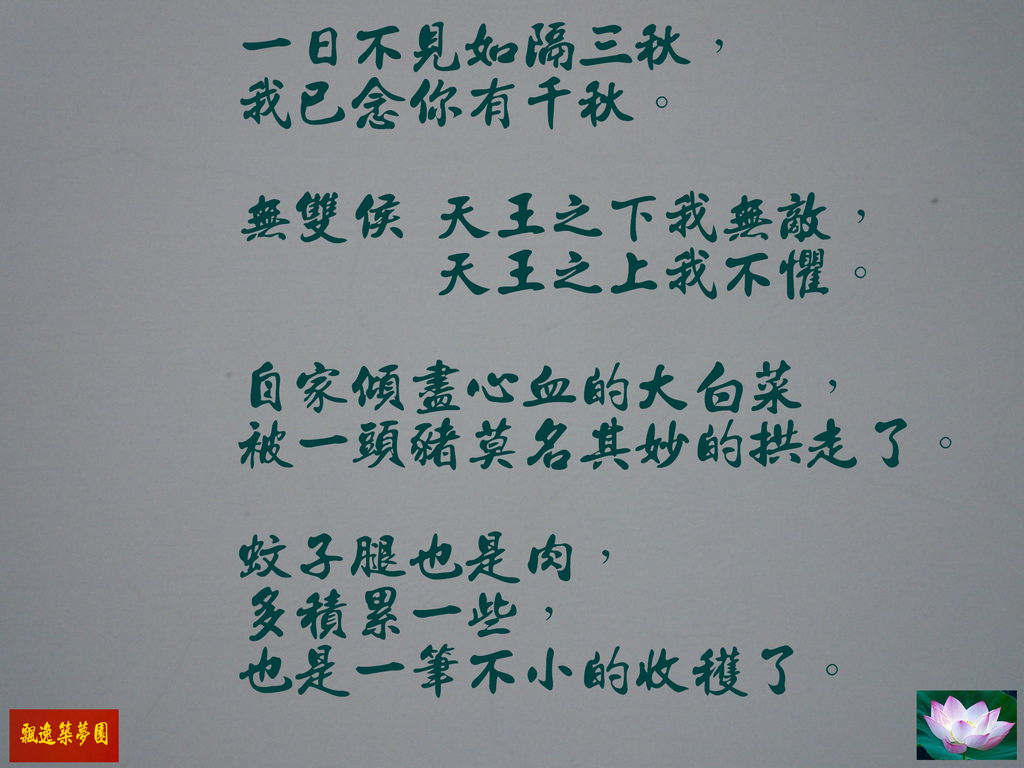 一日不見如隔三秋，
我已念你有千秋。
無雙侯 天王之下我無敵，
天王之上我不懼。
自家傾盡心血的大白菜，
被一頭豬莫名其妙的拱走了。
蚊子腿也是肉，
多積累一些，
也是一筆不小的收穫了。
飄逸築夢園